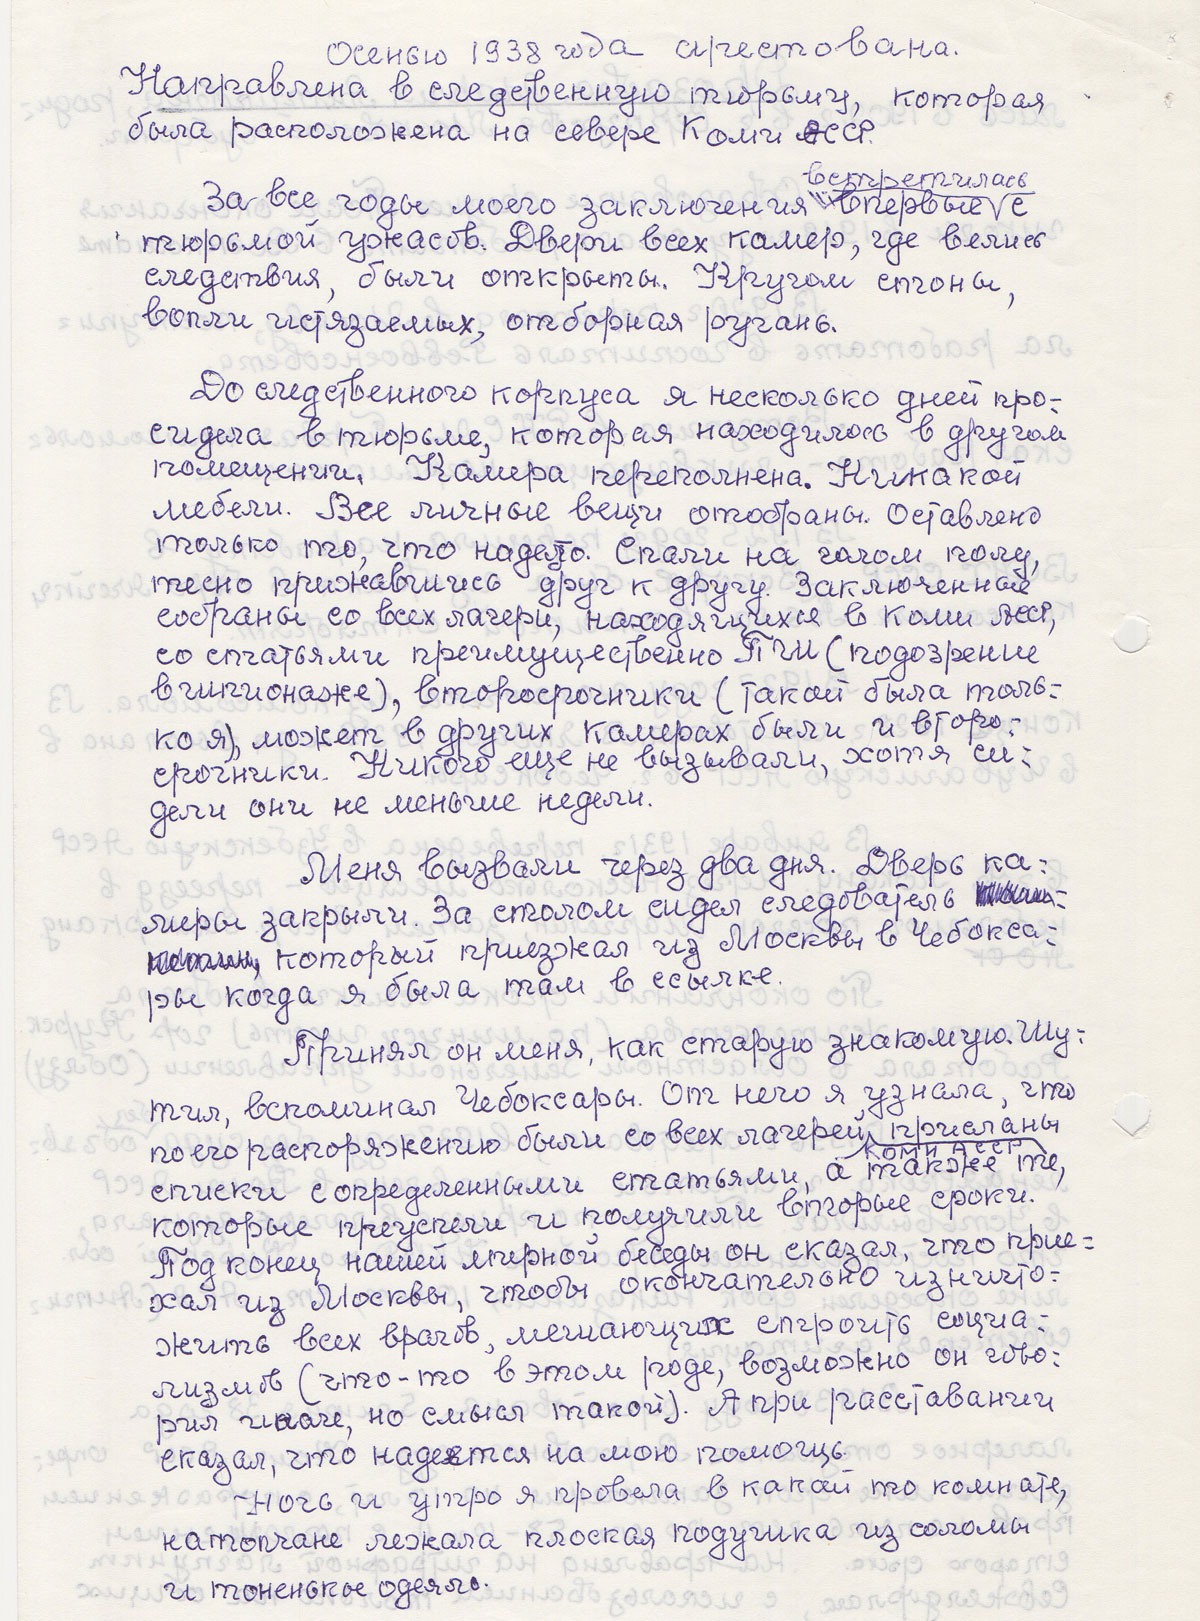 Осенью 1938 года арестована.
Направлена в следственную тюрьму, которая
была расположена на севере Коми АССР.
За все годы моего заключения впервые встретилась с
тюрьмой ужасов. Двери всех камер, где велись
следствия, были открыты. Кругом стоны,
вопли истязаемых, отборная ругань.
До следственного корпуса я несколько дней про-
сидела в тюрьме, которая находилась в другом
помещении. Камера переполнена. Никакой
мебели. Все личные вещи отобраны. Оставлено
только то, что надето. Спали на голом полу,
тесно прижавшись друг к другу. Заключенные
собраны со всех лагери, находящихся в Коми АССР,
со статьями преимущественно ПШ (подозрение
в шпионаже), второсрочники (такой была толь-
ко я), может в других камерах были и второ-
срочники. Никого еще не вызывали, хотя си-
дели они не меньше недели.
Меня вызвали через два дня. Дверь ка-
меры закрыли. За столом сидел следователь
который приезжал из Москвы в Чебокса-
ры когда я была там в ссылке.
Принял он меня, как старую знакомую. Шу-
тил, вспоминал Чебоксары. От него я узнала, что
по его распоряжению были со всех лагерей Коми АССР присланы
списки с определенными статьями, а также те,
которые преуспели и получили вторые сроки.
Под конец нашей мирной беседы он сказал, что прие-
хал из Москвы, чтобы окончательно изничто-
жить всех врагов, мешающих строить социа-
лизмов (что-то в этом роде, возможно он гово-
рил иначе, но смысл такой). А при расставании
сказал, что надеется на мою помощь
Ночь и утро я провела в какой то комнате,
на топчане лежала плоская подушка из соломы
и тоненькое одеяло.